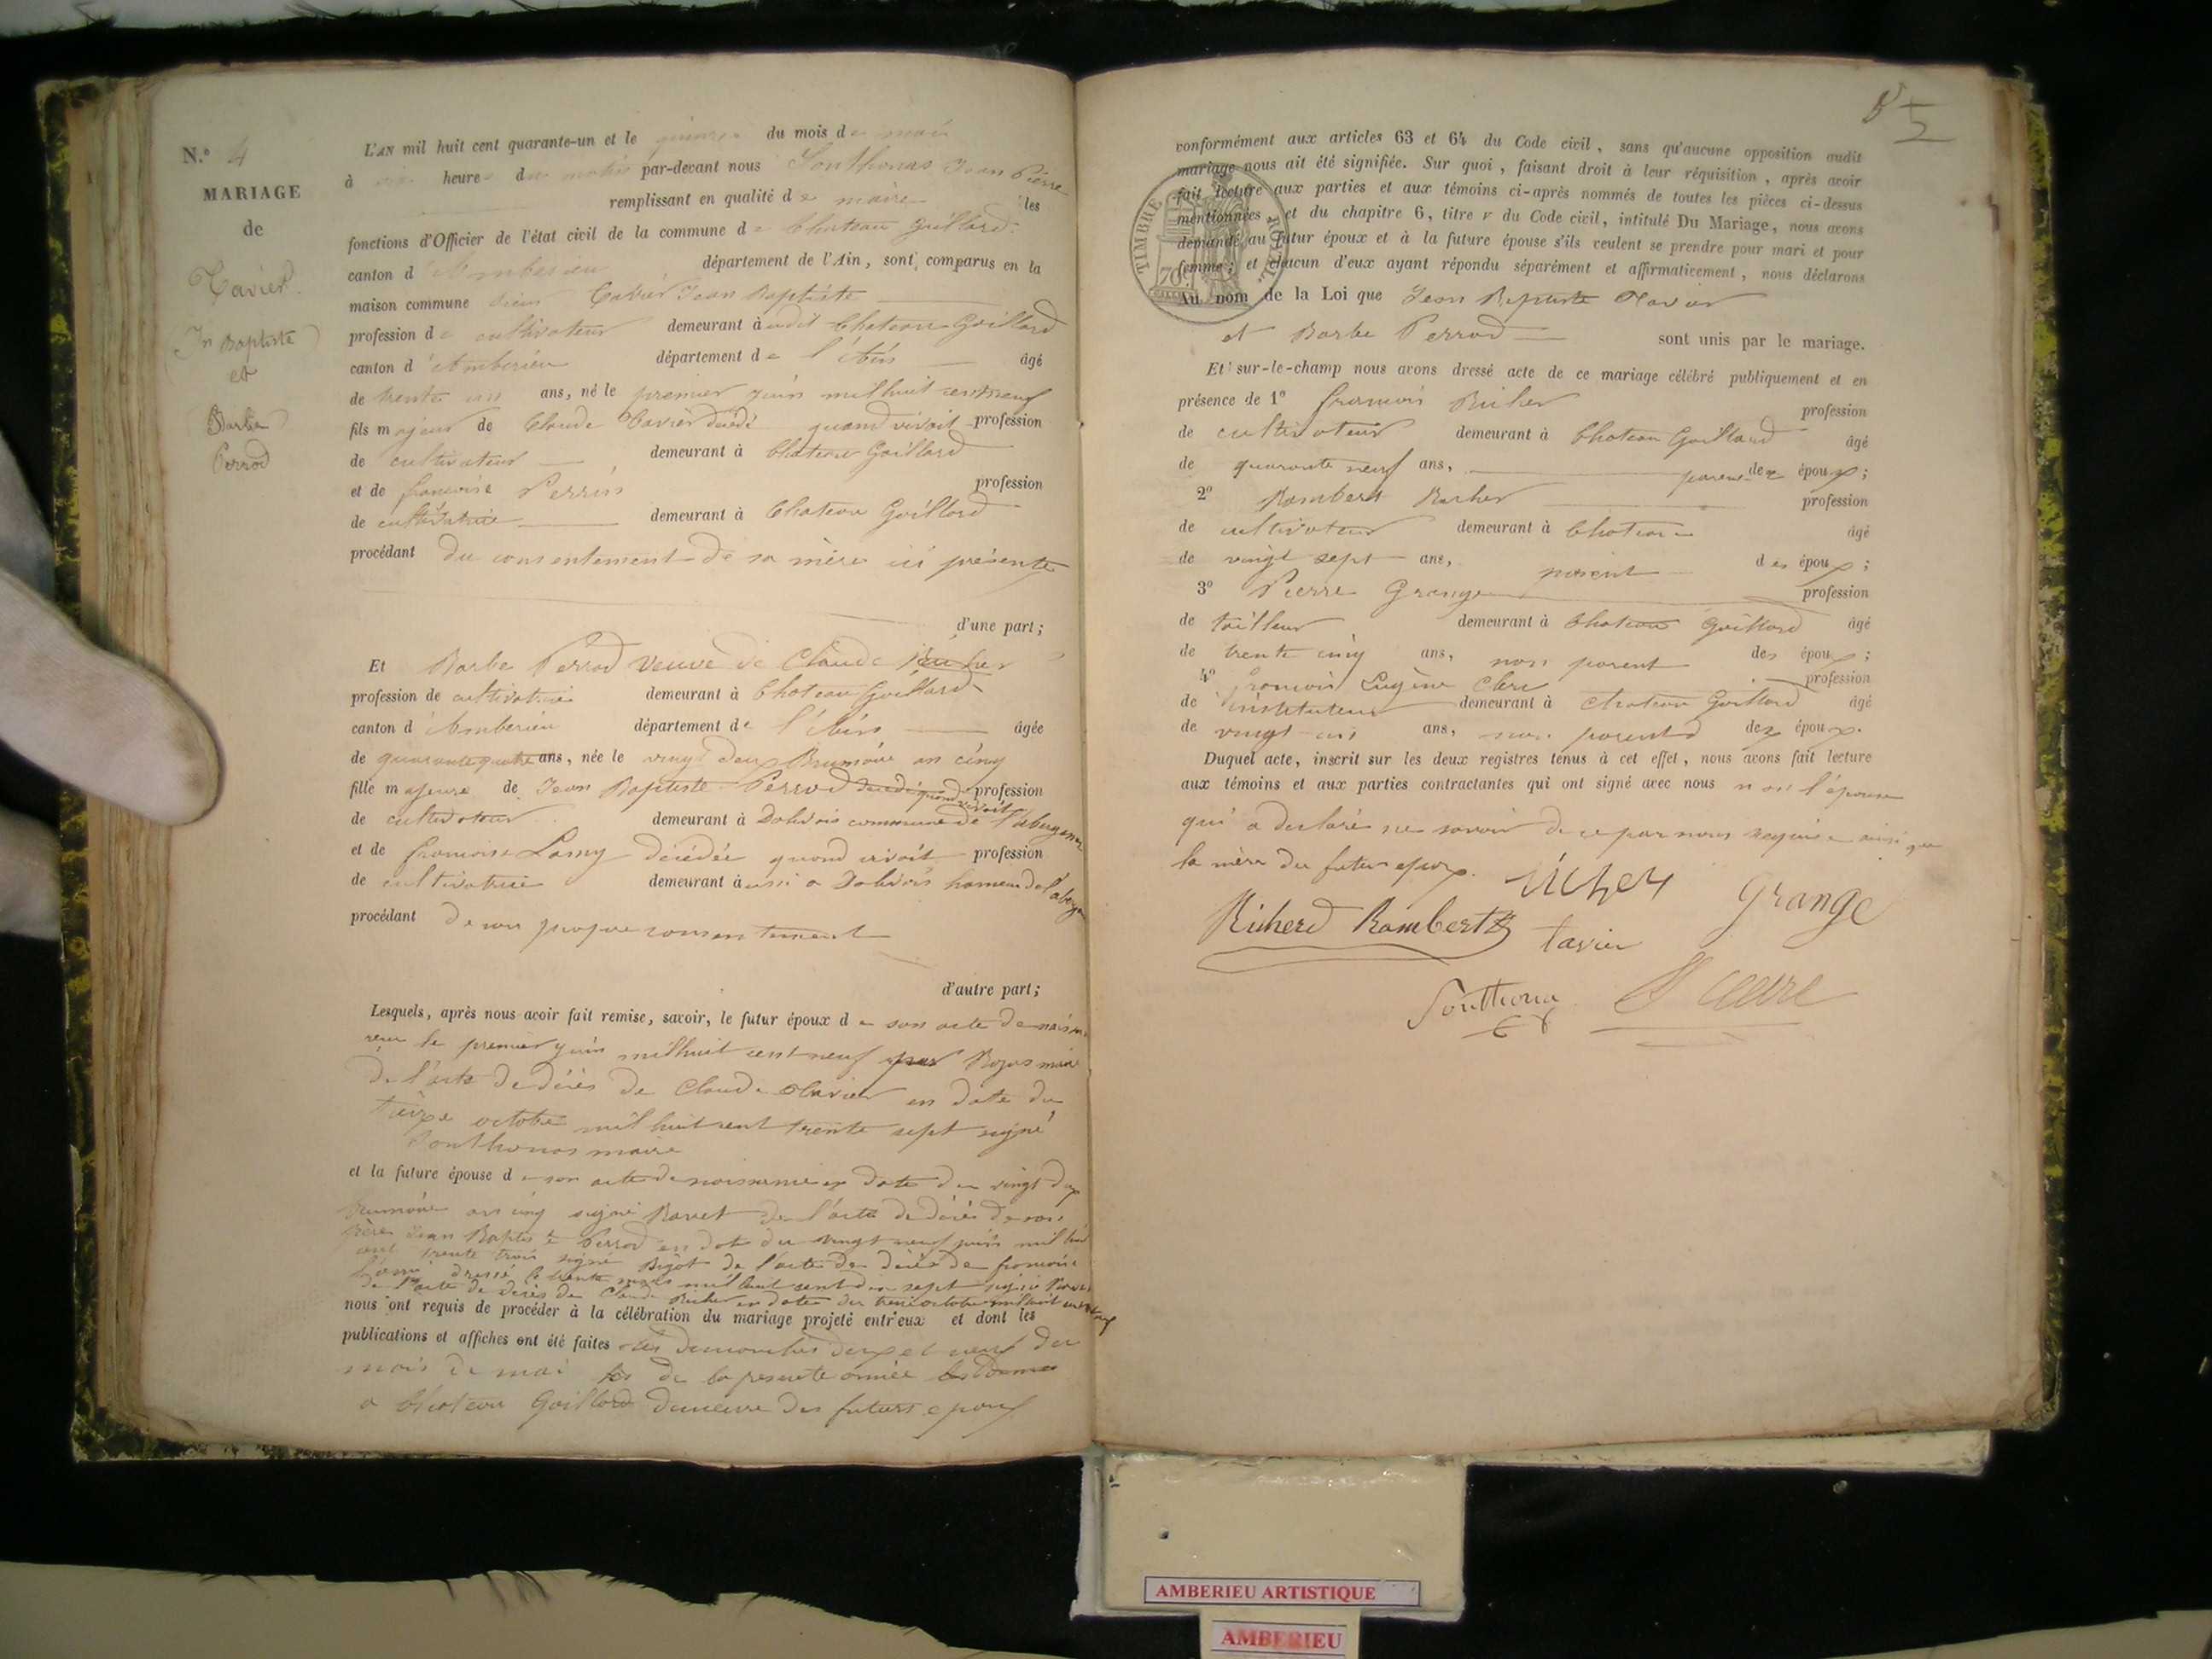 N.º 4
MARIAGE
de
Tavier
Jn Baptiste
et
Barbe
Perrod
L'AN mil huit cent quarante-un et le quinze du mois de mai
à heures du matin par-devant nous Sonthonas Jean Pierre
remplissant en qualité de maire les
fonctions d'Officier de l'état civil de la commune de Chateau Gaillard
canton d'Amberieu département de l'Ain, sont comparus en la
maison commune Tavier Jean Baptiste
profession de cultivateur demeurant à udit Chateau Gaillard
canton d'Amberieu département de l'Ain âgé
de trente un ans, né le premier juin mil huit cent neuf
fils majeur de Claude Tavier décédé quand vivait profession
de cultivateur demeurant à Chateau Gaillard
et de françoise Perrin profession
de cultivatrice demeurant à Chateau Gaillard
procédant du consentement de sa mère ici présente
d'une part;
Et Barbe Perrod veuve de Claude Richer
profession de cultivatrice demeurant à Chateau Gaillard
canton d'Amberieu département de l'Ain âgée
de quarante quatre ans, née le vingt deux Brumaire an cinq
fille majeure de Jean Baptiste Perrod décédé quand vivait profession
de cultivateur demeurant à commune de
et de françoise Lamy décédée quand vivait profession
de cultivatrice demeurant à
procédant de son propre consentement
d'autre part;
Lesquels, après nous avoir fait remise, savoir, le futur époux de son acte de
le premier juin mil huit cent neuf maire
De l'acte de décès de Claude Tavier en date du
treize octobre mil huit cent trente sept signé
Sonthonas maire
et la future épouse de son acte de naissance en date du vingt deux
Brumaire an cinq signé de l'acte de décès de son
père Jean Baptiste Perrod en date du vingt neuf juin mil huit
cent trente trois signé Bigot de l'acte de décès de françoise
Lami dressé le trente mars mil huit cent dix sept signé
de l'acte de décès de Claude Richer en date du treize octobre mil huit cent
nous ont requis de procéder à la célébration du mariage projeté entr'eux et dont les
publications et affiches ont été faites les dimanches deux et neuf du
mois de mai de la présente année
a Chateau Gaillard demeure des futurs epoux
5
conformément aux articles 63 et 64 du Code civil, sans qu'aucune opposition audit
mariage nous ait été signifiée. Sur quoi, faisant droit à leur réquisition, après avoir
fait lecture aux parties et aux témoins ci-après nommés de toutes les pièces ci-dessus
mentionnées et du chapitre 6, titre v du Code civil, intitulé Du Mariage, nous avons
demandé au futur époux et à la future épouse s'ils veulent se prendre pour mari et pour
femme; et chacun d'eux ayant répondu séparément et affirmativement, nous déclarons
TIMBRE ROYAL
70
Au nom de la Loi que Jean Baptiste Tavier
et Barbe Perrod sont unis par le mariage.
Et sur-le-champ nous avons dressé acte de ce mariage célébré publiquement et en
présence de 1º françois Richer profession
de cultivateur demeurant à Chateau Gaillard âgé
de quarante neuf ans, parent des époux;
2º Rambert Richer profession
de cultivateur demeurant à Chateau âgé
de vingt sept ans, parent des époux;
3º Pierre Grange profession
de tailleur demeurant à Chateau Gaillard âgé
de trente cinq ans, non parent des époux;
4º françois Eugène Clerc profession
de instituteur demeurant à Chateau Gaillard âgé
de vingt ans, non parent des époux.
Duquel acte, inscrit sur les deux registres tenus à cet effet, nous avons fait lecture
aux témoins et aux parties contractantes qui ont signé avec nous non l'épouse
qui a declaré ne savoir de ce par nous requise ainsi que
la mère du futur epoux. richer Grange
Richerd Rambert tavier
Sonthona
AMBERIEU ARTISTIQUE
AMBERIEU